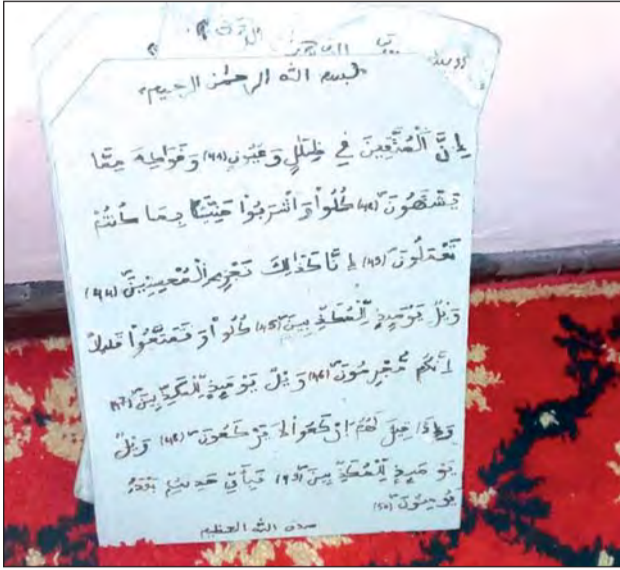 بسم الله الرحمن الرحيم
إِنَّ ٱلْمُتَّقِينَ فِي ظِلَٰلٍ وَعُيُونٍ (41) وَفَوَاكِهَ مِمَّا
يَشْتَهُونَ (42) كُلُوا۟ وَٱشْرَبُوا۟ هَنِيٓـًٔا بِمَا كُنتُمْ
تَعْمَلُونَ (43) إِنَّا كَذَٰلِكَ نَجْزِي ٱلْمُحْسِنِينَ (44)
وَيْلٌ يَوْمَئِذٍ لِّلْمُكَذِّبِينَ (45) كُلُوا۟ وَتَمَتَّعُوا۟ قَلِيلًا
إِنَّكُم مُّجْرِمُونَ (46) وَيْلٌ يَوْمَئِذٍ لِّلْمُكَذِّبِينَ (47)
وَإِذَا قِيلَ لَهُمُ ٱرْكَعُوا۟ لَا يَرْكَعُونَ (48) وَيْلٌ
يَوْمَئِذٍ لِّلْمُكَذِّبِينَ (49) فَبِأَيِّ حَدِيثٍ بَعْدَهُ
يُؤْمِنُونَ (50)
صدق الله العظيم